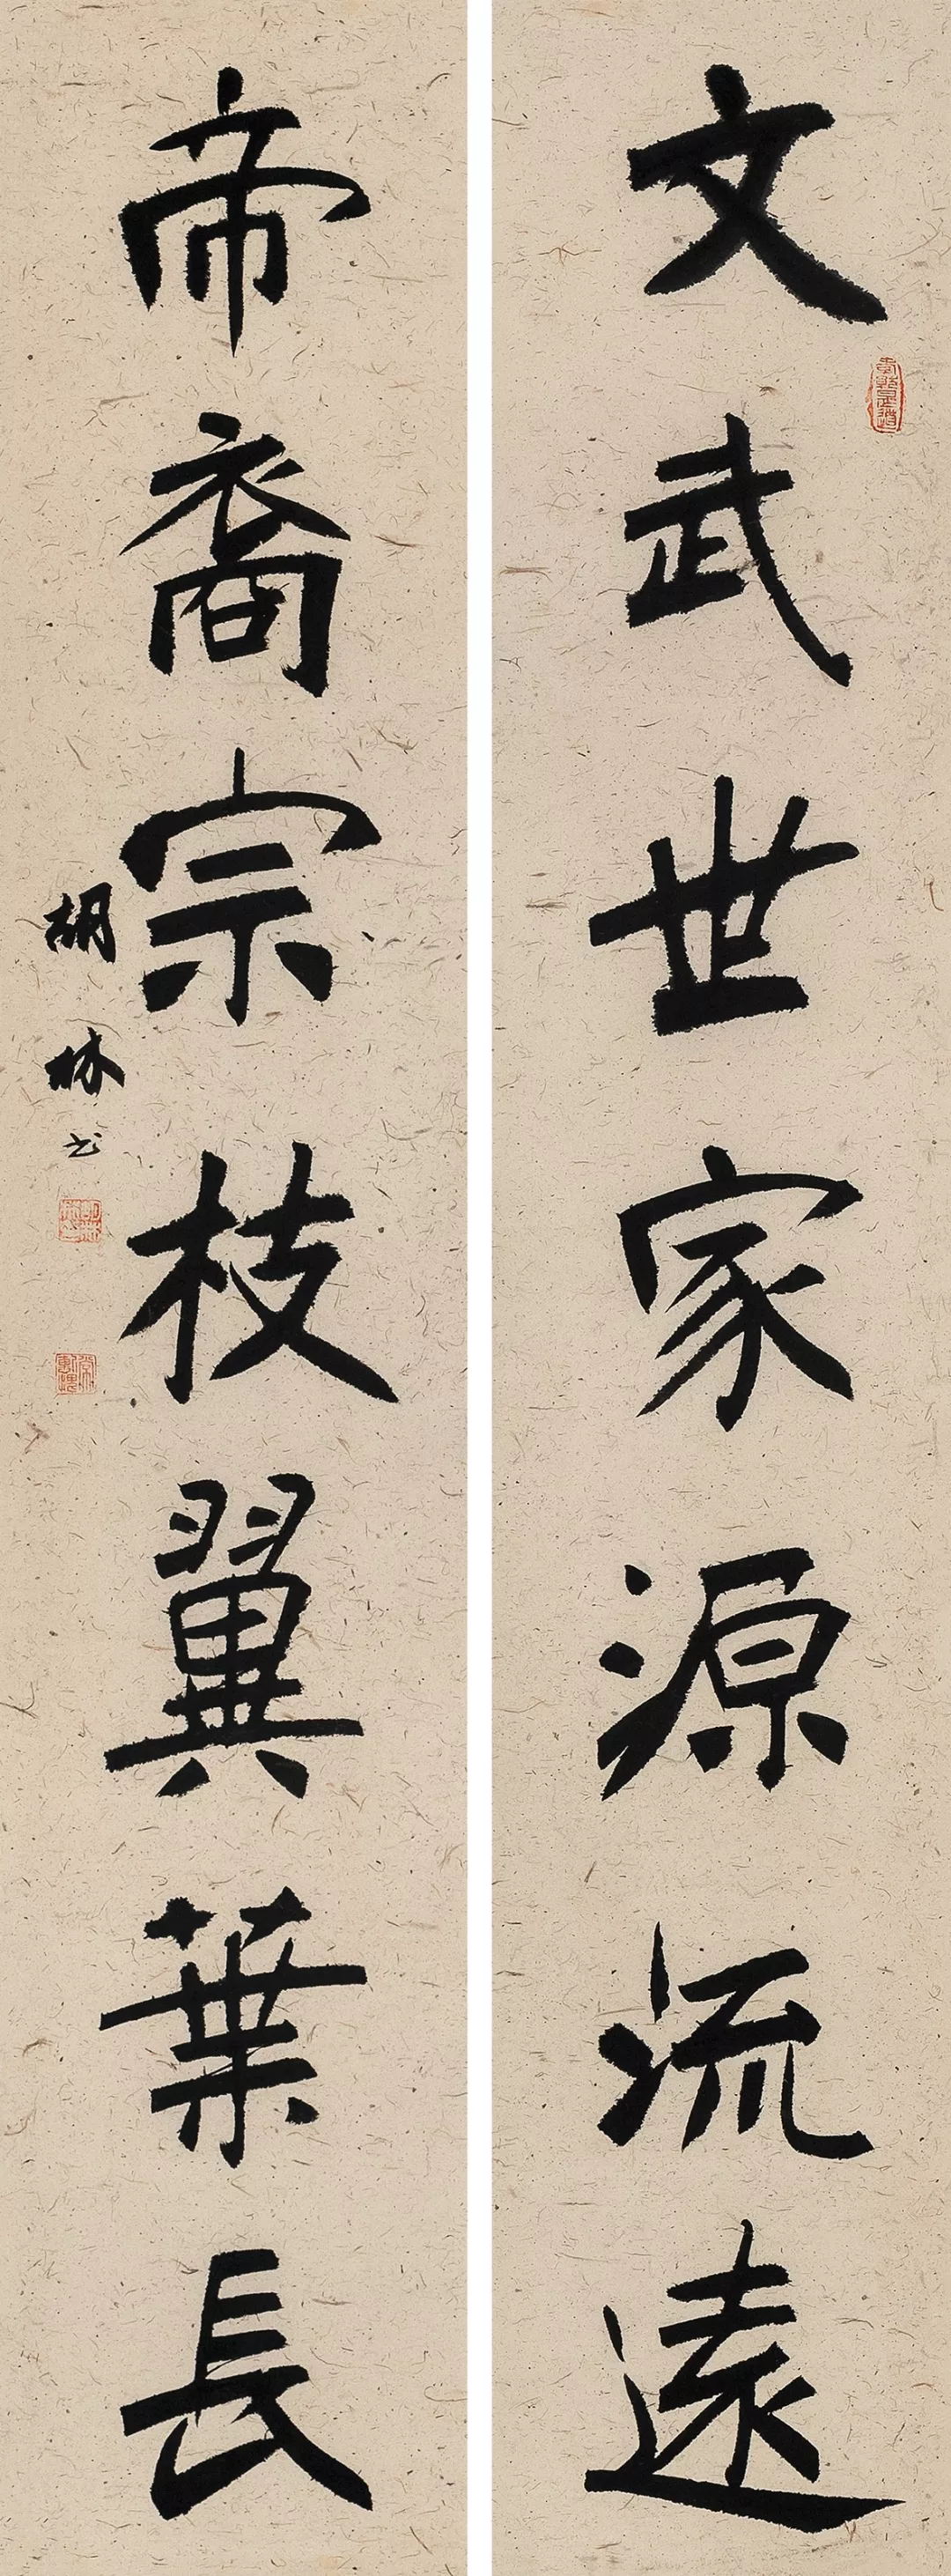 文武世家源流遠
帝裔宗枝翼葉長
胡林书